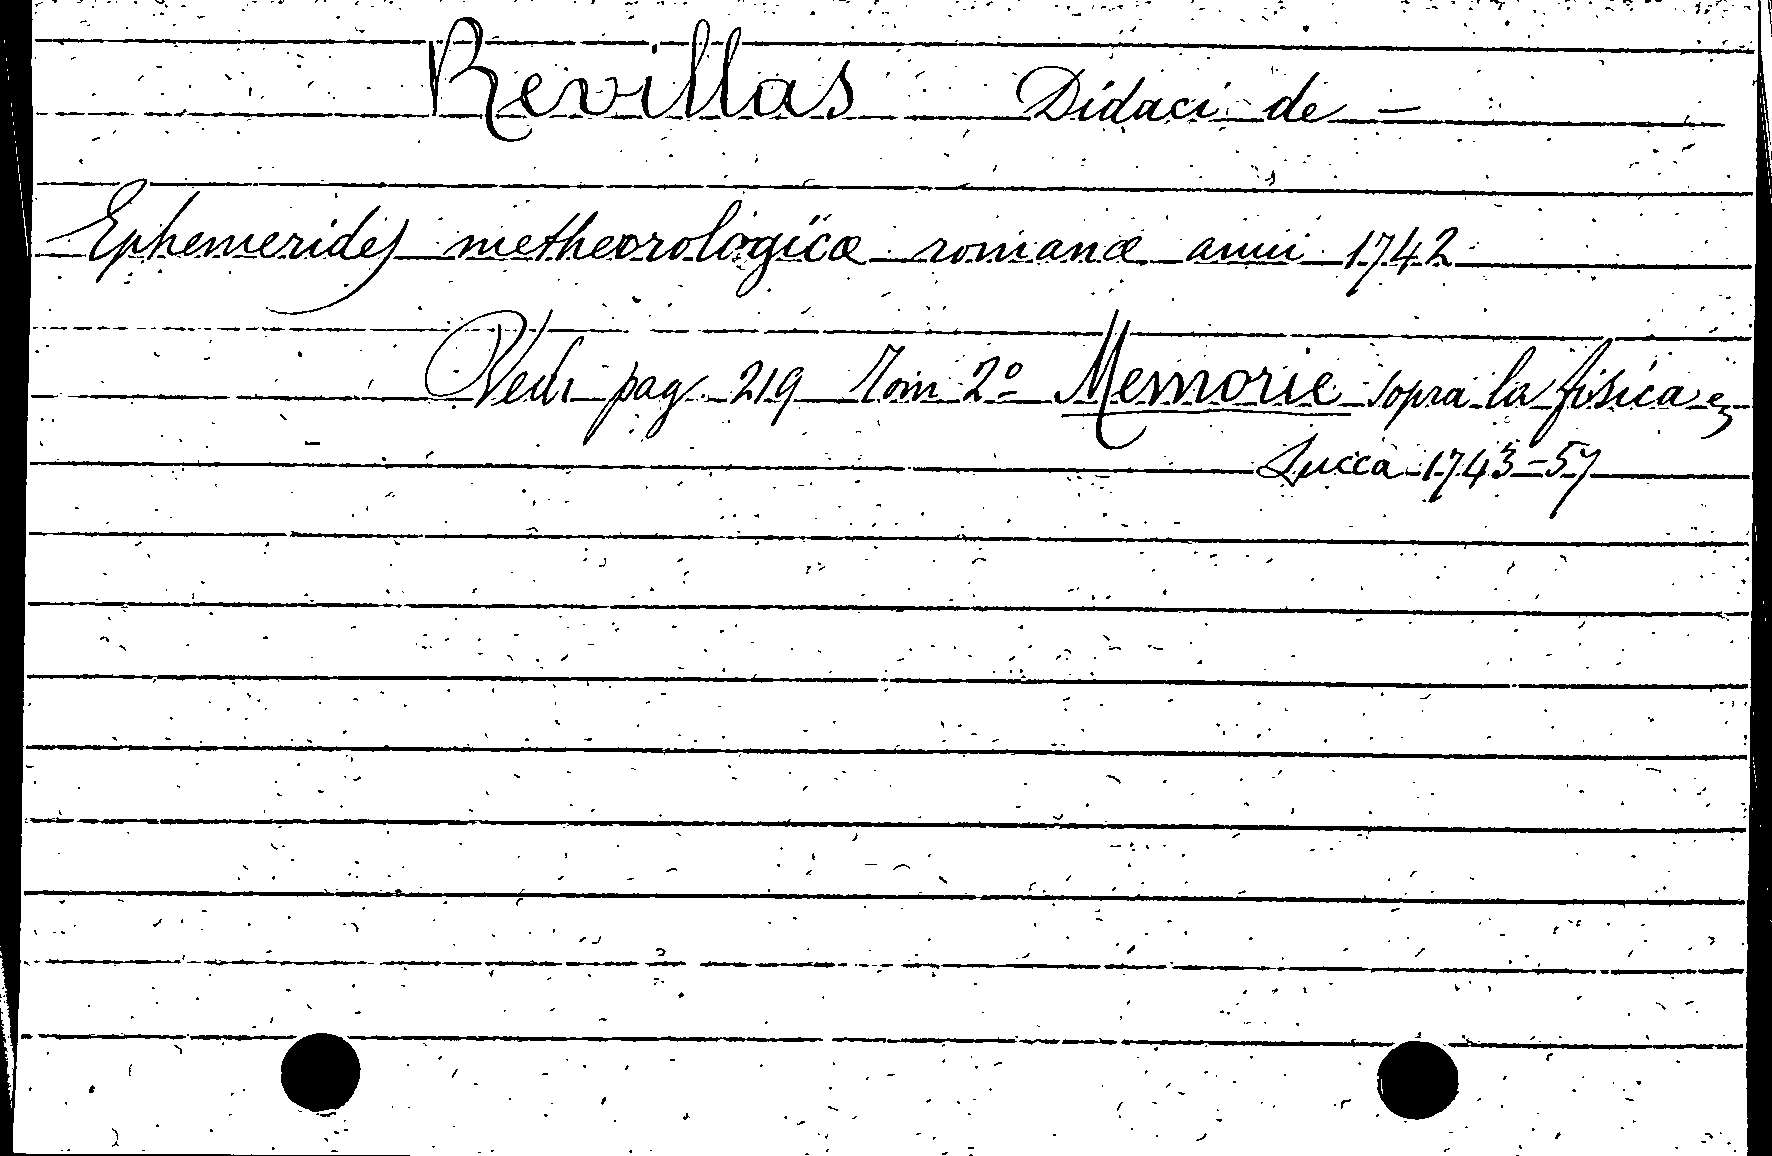 Revillas Didaci de –
Ephemerides metheorologicæ romanæ anni 1742
Vedi pag. 219 Tom 2º Memorie sopra la fisica
Lucca 1743-57